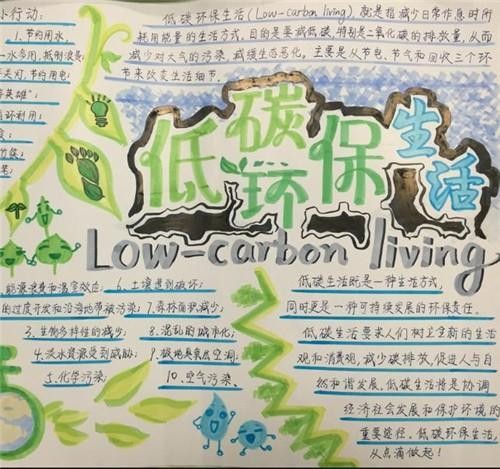 小行动：
1.节约用水，
一水多用，抵制浪费；
关灯，节约用电；
英雄"；
循环利用；
低碳环保生活(Low-carbon living)，就是指减少日常作息时所
耗用能量的生活方式，目的是要减低碳，特别是二氧化碳的排放量，从而
减少对大气的污染，减缓生态恶化。主要是从节电、节气和回收三个环
节来改变生活细节。
低碳环保生活
Low-carbon living
能源浪费和温室效应；
的过度开发和沿海地带被污染；
3.生物多样性的减少；
4.淡水资源受到威胁；
5.化学污染；
6.土壤遭到破坏；
7.森林面积减少；
8.混乱的城市化；
9.极地臭氧层空洞；
10.空气污染。
低碳生活既是一种生活方式，
同时更是一种可持续发展的环保责任。
低碳生活要求人们树立全新的生活
观和消费观，减少碳排放，促进人与自
然和谐发展。低碳生活将是协调
经济社会发展和保护环境的
重要途径。低碳环保生活，
从点滴做起！